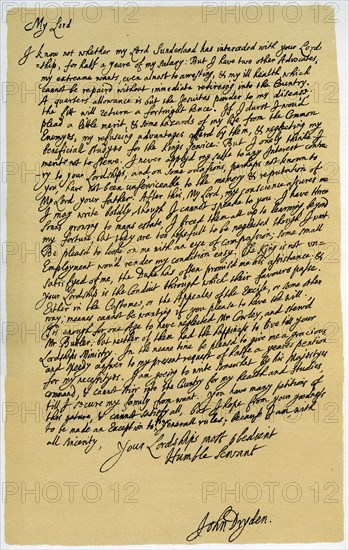 My Lord
I know not whether my Lord Sunderland has interceded with your Lord
ship, for half a yeare of my salary: But I have two other Advocates,
my extreame wants, even almost to arresting, & my ill health, which
cannot be repaird without immediate retireing into the Country.
A quarters allowance is but the Jesuites powder to my disease;
the fitt will returne a fortnight hence. If I durst I wou'd
plead a little merit, & some hazards of my life from the Common
Enemyes, my refuseing advantages offerd by them, & neglecting my
beneficiall studyes for the King's service: But I onely thinke I
merit not to sterve. I never applyd my selfe to any Interest contra
ry to your Lordship's; and on some occasions, perhaps not known to
you, have not been unserviceable to the memory & reputation of
My Lord your father. After this, My Lord, my conscience assures me
I may write boldly, though I cannot speake to you. I have three
Sonns growing to mans estate, I breed them all up to learning, beyond
my fortune; but they are too hopefull to be neglected though I want.
Be pleasd to looke on me with an eye of compassion; some small
Employment wou'd render my condition easy. The King is not un
satisfyed of me, the Duke has often promisd me his assistance; &
your Lordship is the Conduit through which their favours passe.
Either in the Customes, or the Appeales of the Excise, or some other
way; meanes cannot be wanting if you please to have the will.
Tis enough for one Age to have neglected Mr Cowley, and stervd
Mr Butler; but neither of them had the happiness to live till your
Lordship's Ministry. In the meane time be pleasd to give me a gracious
and speedy answer to my present request of halfe a yeares pention
for my necessityes. I am going to write somewhat by his Majestyes
command, & cannot stir into the Country for my health and studies,
till I secure my family from want. You have many petitions of
this nature, & cannot satisfy all, but I hope from your goodness
to be made an Exception to your generall rules; because I am, with
all sincerity,
Your Lordship's most obedient
Humble Servant
John Dryden.
PHOTO 12